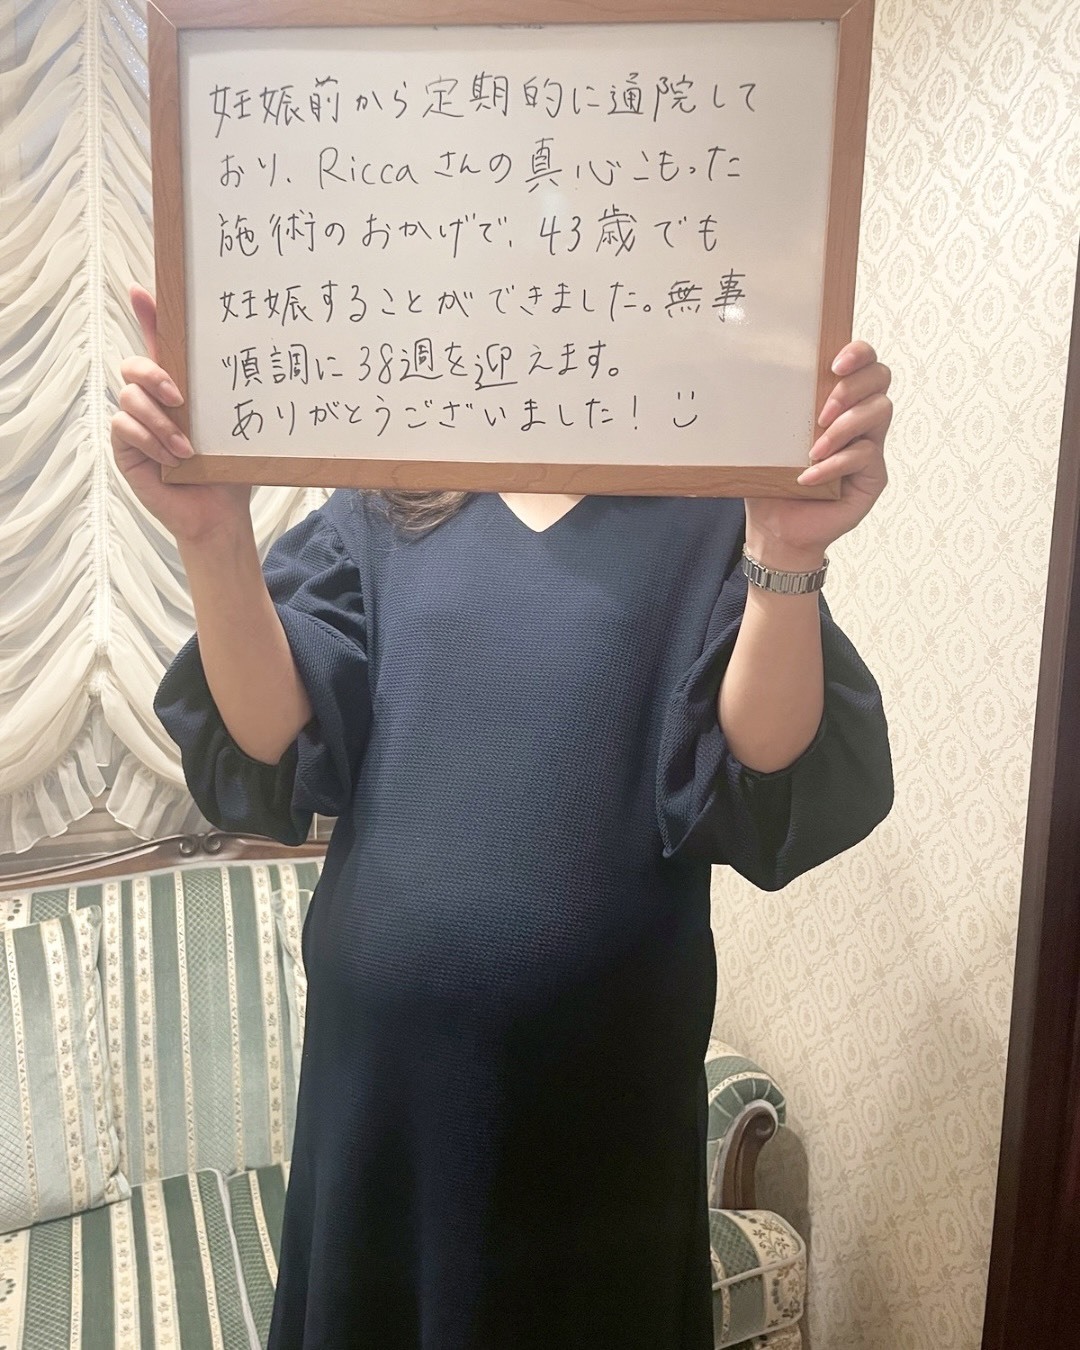 妊娠前から定期的に通院して
おり、Riccaさんの真心こもった
施術のおかげで、43歳でも
妊娠することができました。無事
順調に38週を迎えます。
ありがとうございました！ :)